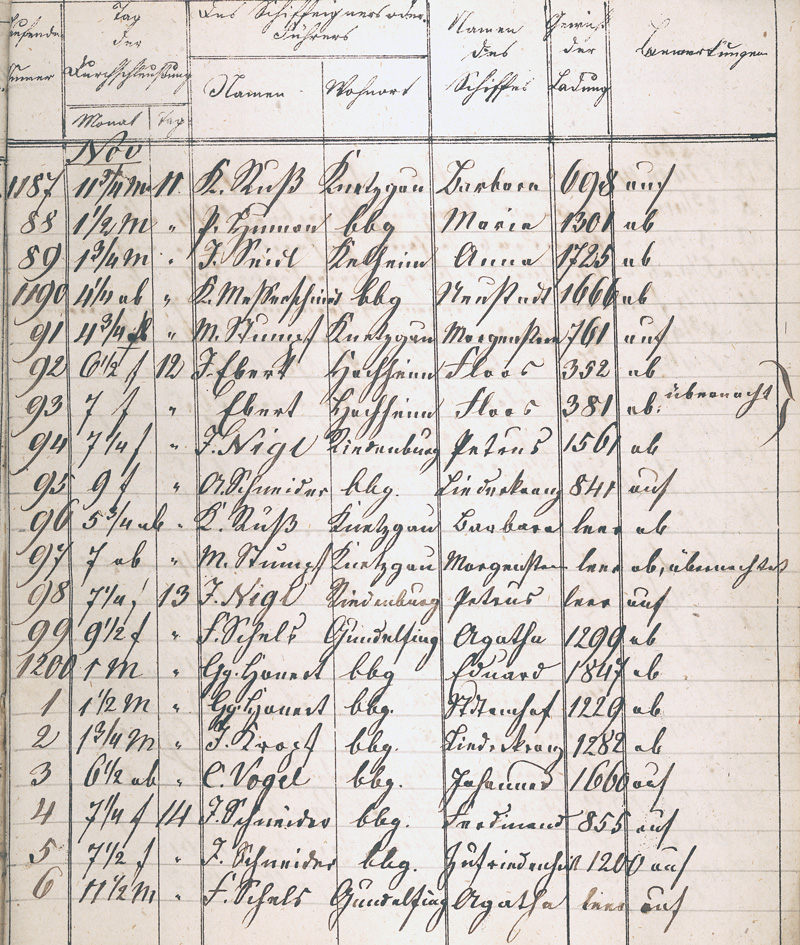 Laufende Tag Des Schiffeigners oder Namen Gewicht Bemerkungen
Numer der Führers des der
Durchschleußung Namen Wohnort Schiffes Ladung
Monat Tag
Nov
1187 11 3/4 M 11 K. Ruß Knetzgau Barbara 698 auf
88 1 1/2 M " P. Human bbg Maria 1301 ab
89 1 3/4 M " J. Seidl Kelheim Anna 1725 ab
1190 4 1/4 ab " K. Messerschmid bbg Neustadt 1666 ab
91 4 3/4 ab " M. Stumpf Knetzgau Morgenstern 761 auf
92 6 1/2 f 12 J. Ebert Hochheim Floos 352 ab
93 7 f " Ebert Hochheim Floos 381 ab. übernacht
94 7 1/4 f " J. Nigl Riedenburg Petrus 1561 ab
95 9 f " A. Schneider bbg. Liederkranz 841 auf
96 5 3/4 ab " K. Ruß Knetzgau Barbara leer ab
97 7 ab " M. Stumpf Knetzgau Morgenstern leer ab, übernachtet
98 7 1/4 f 13 J. Nigl Riedenburg Petrus leer auf
99 9 1/2 f " F. Schels Gundelfing Agatha 1299 ab
1200 1 M " Gg. Hanert bbg Eduard 1847 ab
1 1 1/2 M " Gg. Hanert bbg. Stdtamhof 1229 ab
2 1 3/4 M " J. Kropf bbg. Liederkranz 1282 ab
3 6 1/2 ab " C. Vogel bbg. Johannes 1660 auf
4 7 1/4 f 14 J. Schneider bbg. Ferdinand 855 auf
5 7 1/2 f " J. Schneider bbg. Zufriedenheit 1200 auf
6 11 1/2 M " F. Schels Gundelfing Agatha leer auf